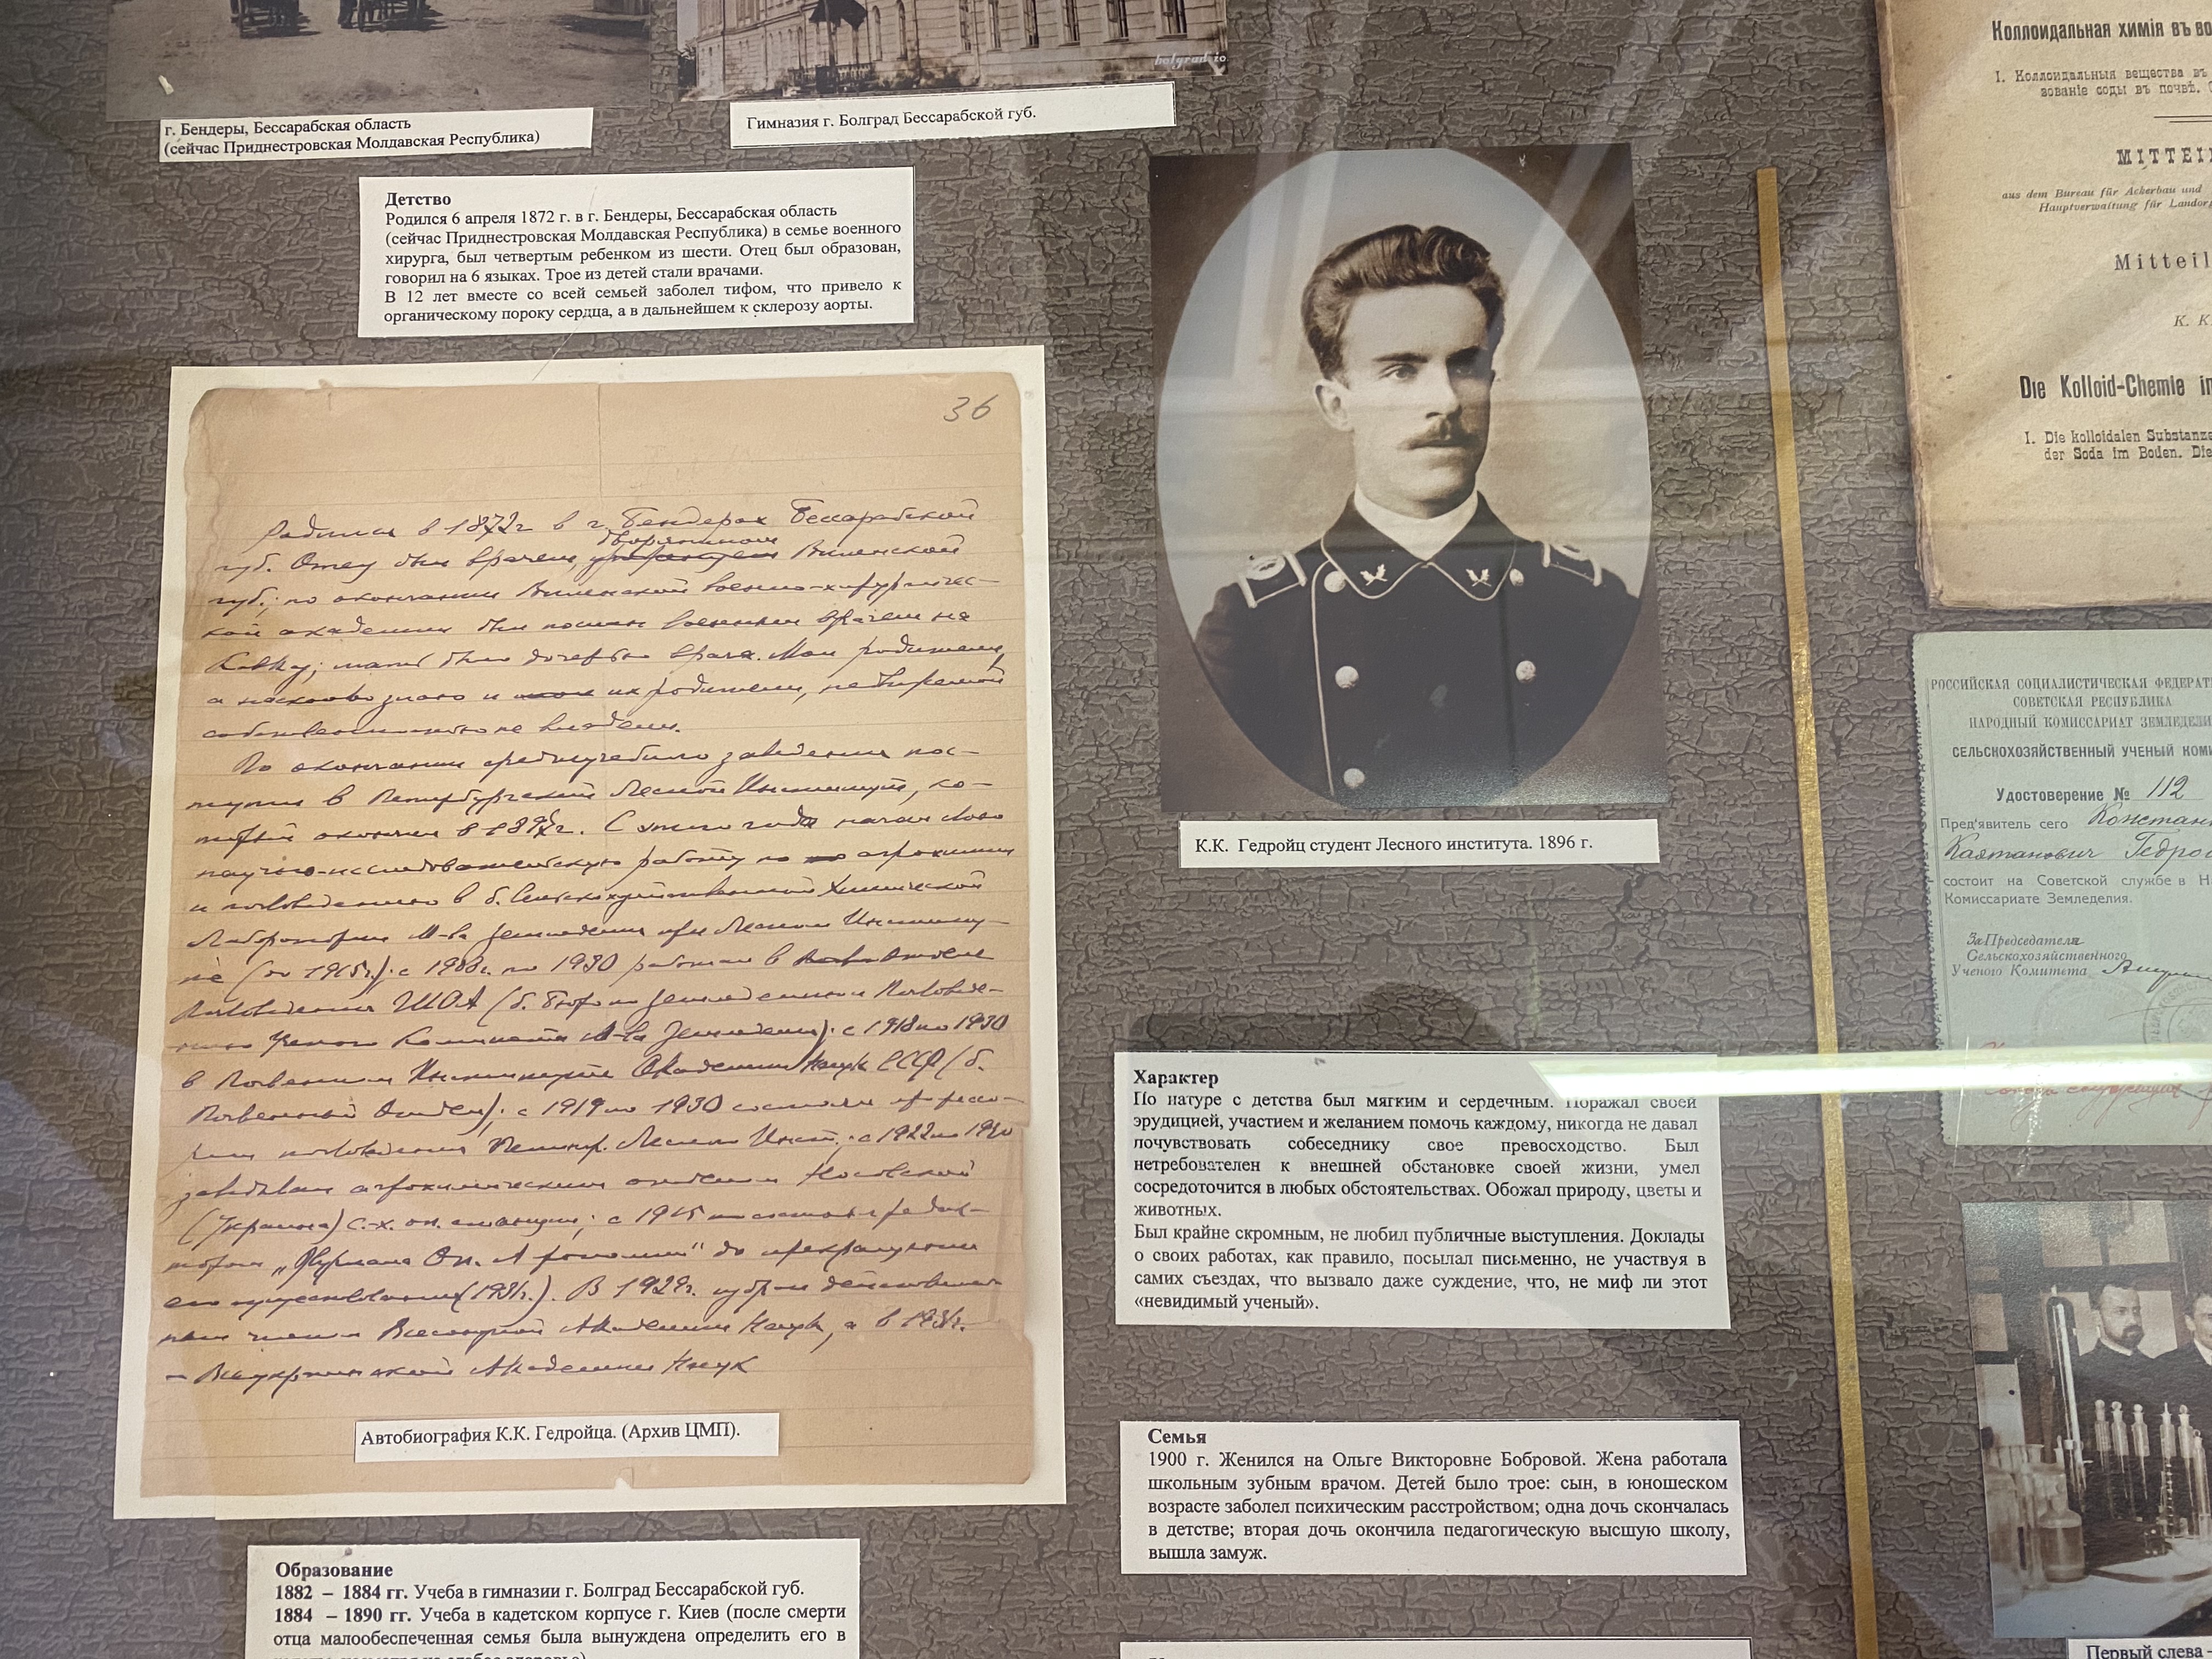 bolgrad.io
г. Бендеры, Бессарабская область
(сейчас Приднестровская Молдавская Республика)
Гимназия г. Болград Бессарабской губ.
Детство
Родился 6 апреля 1872 г. в г. Бендеры, Бессарабская область
(сейчас Приднестровская Молдавская Республика) в семье военного
хирурга, был четвертым ребенком из шести. Отец был образован,
говорил на 6 языках. Трое из детей стали врачами.
В 12 лет вместе со всей семьей заболел тифом, что привело к
органическому пороку сердца, а в дальнейшем к склерозу аорты.
36
Родился в 1872 г в г. Бендерах Бессарабской
дворянином
губ. Отец был врачем, Виленской
губ.; по окончании Виленской военно-хирургичес-
кой академии был послан военным врачем на
Кавказ; мать была дочерью врача. Мои родители,
а насколько знаю и их родители, недвижимой
собственностью не владели.
По окончании средн. учебного заведения пос-
тупил в Петербургский Лесной Институт, ко-
торый окончил в 189 г. С этого года начал свою
научно-исследовательскую работу по агрохимии
и почвоведению в б. Сельскохозяйственной Химической
Лаборатории М-ва Земледелия при Лесном Институ-
те (по 1915 г.): с 1908 г. по 1930 работал в Отделе
Почвоведения ГИОА (б. Бюро по Земледелию и Почвове-
дению Ученого Комитета М-ва Земледелия): с 1918 по 1930
в Почвенном Институте Академии Наук СССР (б.
Почвенный Отдел); с 1919 по 1930 состоял профессо-
ром почвоведения Ленингр. Лесного Инст.; с 1922 по 1930
заведывал агрохимическим отделом Носовской
(Украина) с.-х. оп. станции; с 1915 состоял редак-
тором „Журнала Оп. Агрономии" до прекращения
его существования (1931 г.). В 1929 г. избран действитель-
ным членом Всесоюзной Академии Наук, а в 1931 г.
— Всеукраинской Академии Наук
Автобиография К.К. Гедройца. (Архив ЦМП).
Образование
1882 – 1884 гг. Учеба в гимназии г. Болград Бессарабской губ.
1884 – 1890 гг. Учеба в кадетском корпусе г. Киев (после смерти
отца малообеспеченная семья была вынуждена определить его в
К.К. Гедройц студент Лесного института. 1896 г.
Характер
По натуре с детства был мягким и сердечным. Поражал своей
эрудицией, участием и желанием помочь каждому, никогда не давал
почувствовать собеседнику свое превосходство. Был
нетребователен к внешней обстановке своей жизни, умел
сосредоточится в любых обстоятельствах. Обожал природу, цветы и
животных.
Был крайне скромным, не любил публичные выступления. Доклады
о своих работах, как правило, посылал письменно, не участвуя в
самих съездах, что вызвало даже суждение, что, не миф ли этот
«невидимый ученый».
Семья
1900 г. Женился на Ольге Викторовне Бобровой. Жена работала
школьным зубным врачом. Детей было трое: сын, в юношеском
возрасте заболел психическим расстройством; одна дочь скончалась
в детстве; вторая дочь окончила педагогическую высшую школу,
вышла замуж.
Коллоидальная химія въ во
I. Коллоидальныя вещества въ
зованіе соды въ почвѣ.
MITTEI
aus dem Bureau für Ackerbau und
Hauptverwaltung für Landor
Mitteil
K. K
Die Kolloid-Chemie in
I. Die kolloidalen Substanze
der Soda im Boden. Die
РОССИЙСКАЯ СОЦИАЛИСТИЧЕСКАЯ ФЕДЕРАТ
СОВЕТСКАЯ РЕСПУБЛИКА
НАРОДНЫЙ КОМИССАРИАТ ЗЕМЛЕДЕЛИ
СЕЛЬСКОХОЗЯЙСТВЕННЫЙ УЧЕНЫЙ КОМИ
Удостоверение № 112
Пред'явитель сего Констан
Каэтанович Гедро
состоит на Советской службе в Н
Комиссариате Земледелия.
За Председателя
Сельскохозяйственного
Ученого Комитета
Первый слева –